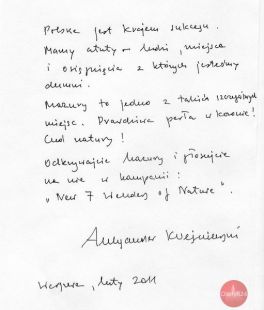 Polska jest krajem sukcesu.
Mamy atuty – ludzi, miejsca
i osiągnięcia z których jesteśmy
dumni.
Mazury to jedno z takich szczególnych
miejsc. Prawdziwa perła w koronie!
Cud natury!
Odkrywajcie Mazury i głosujcie
na nie w kampanii:
"New 7 Wonders of Nature".
Aleksander Kwaśniewski
Warszawa, luty 2011